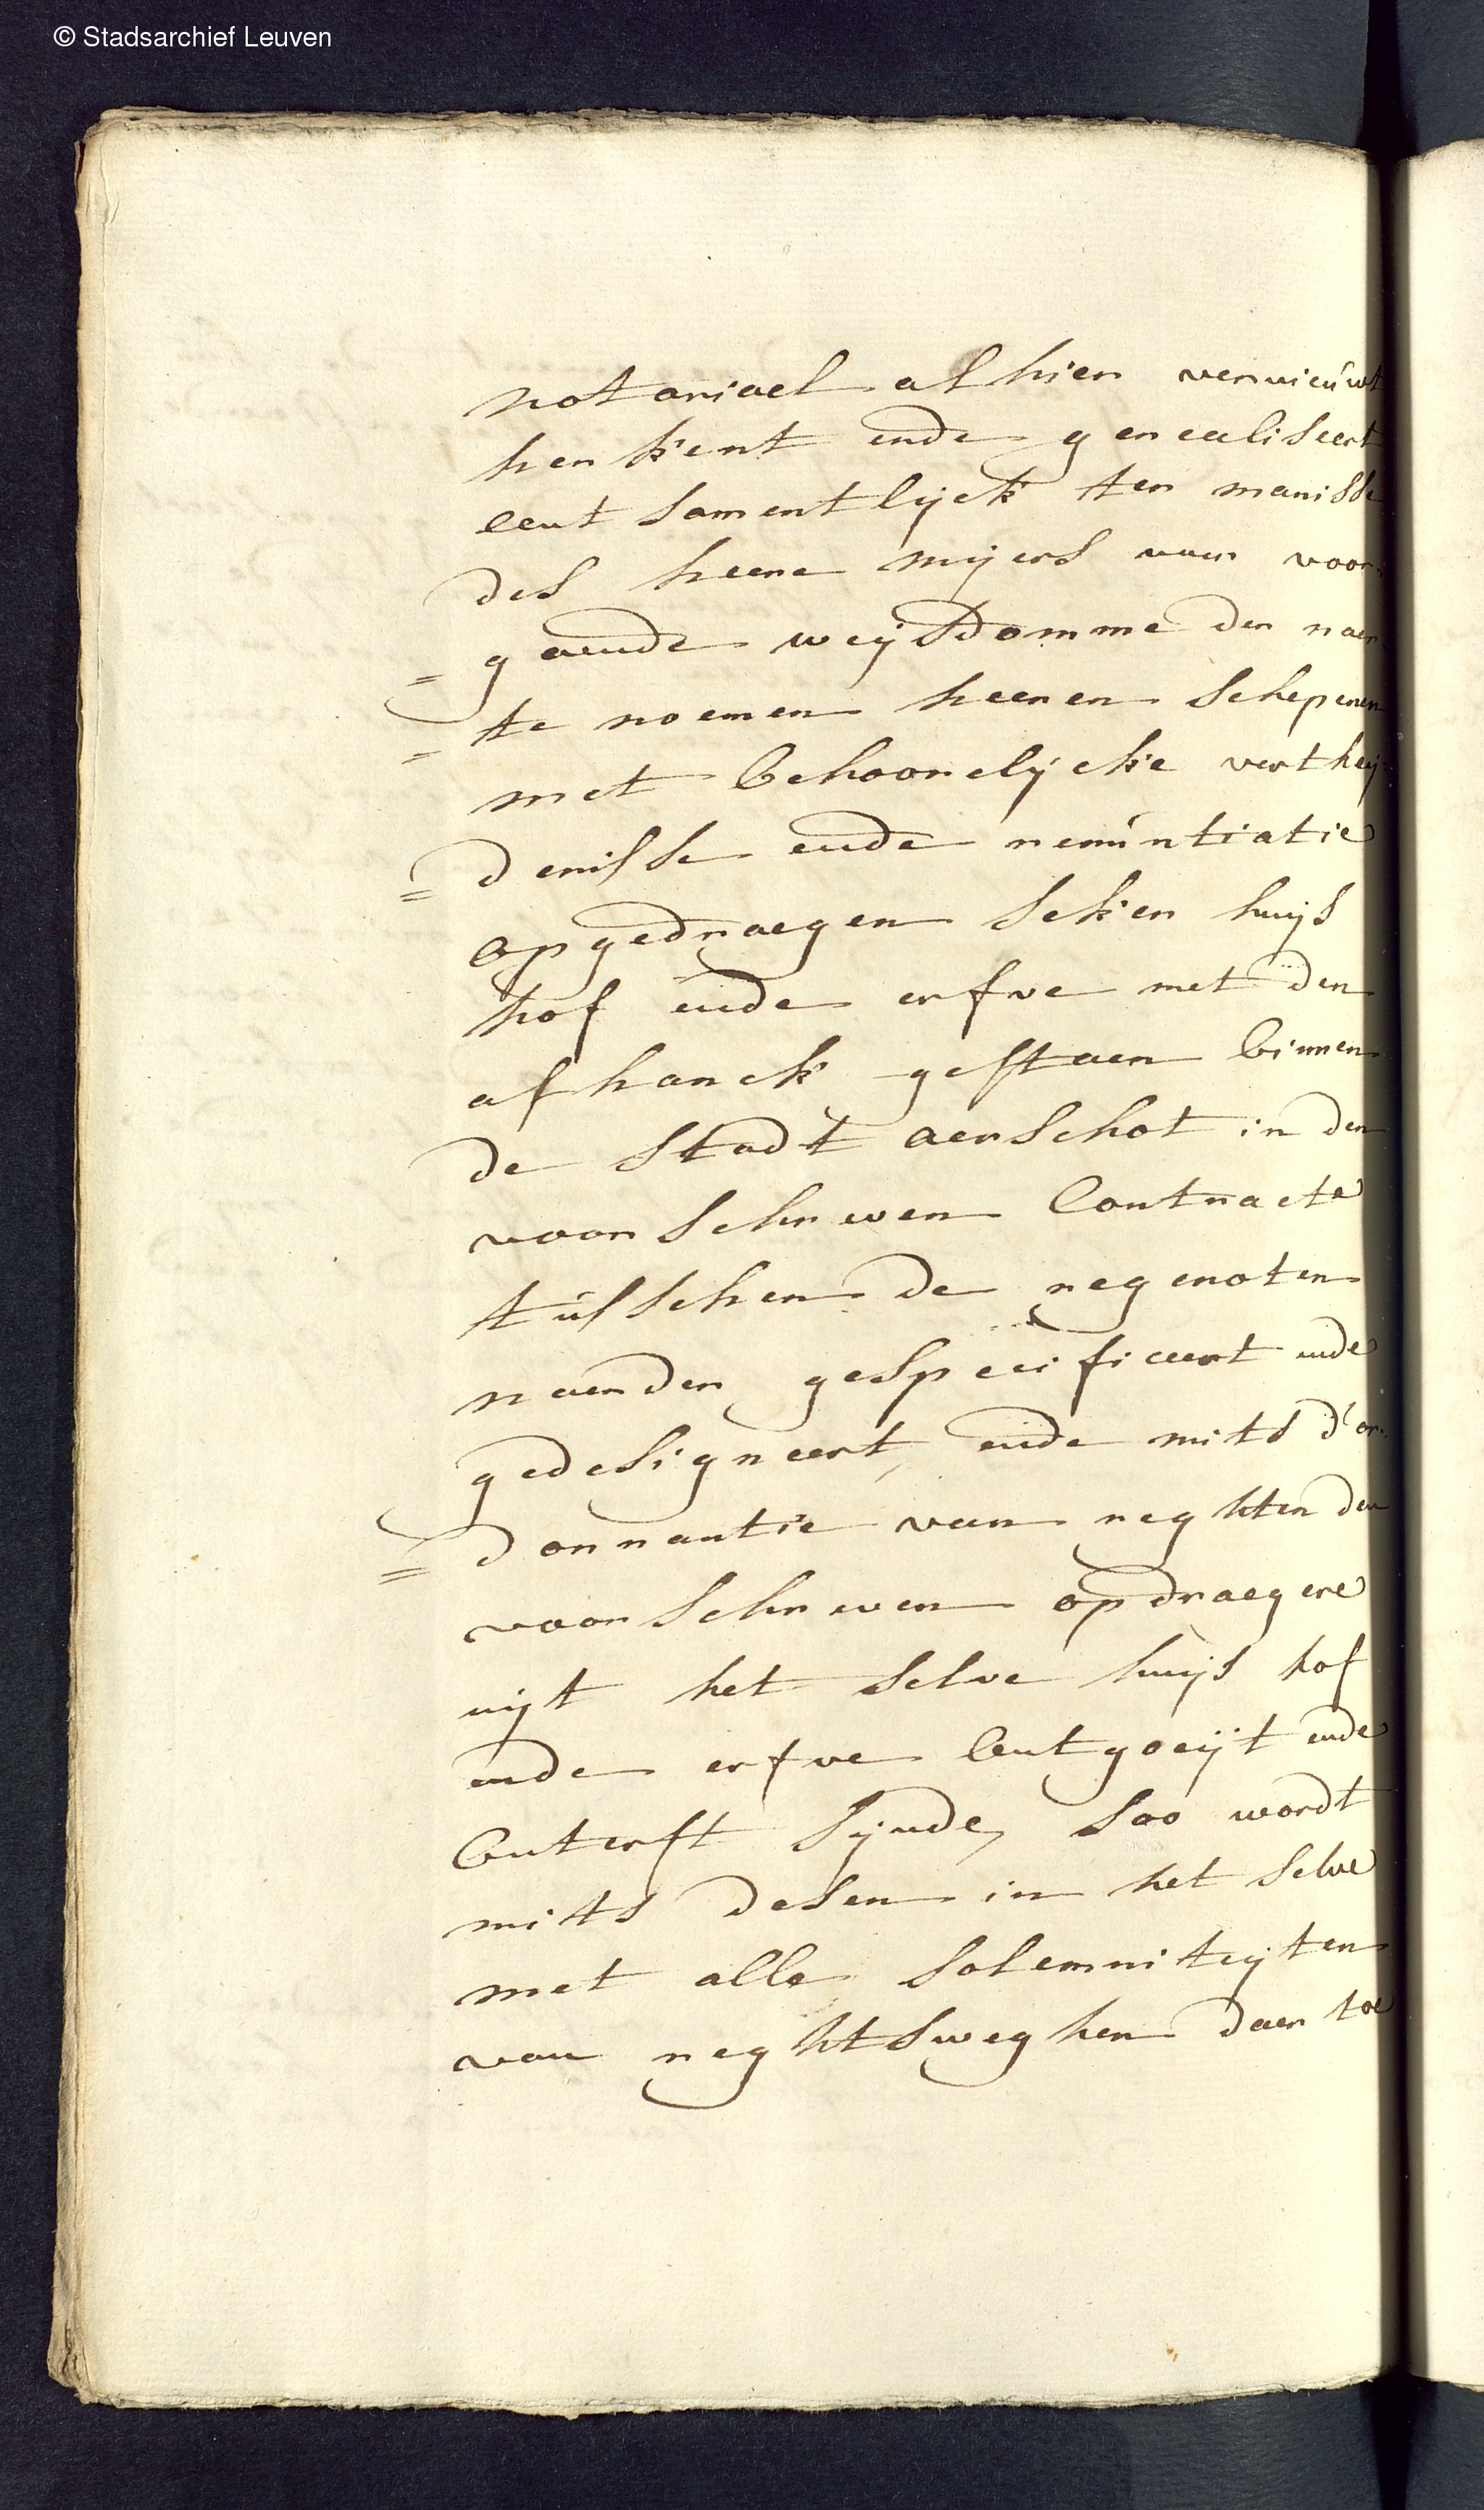 © Stadsarchief Leuven
notariael alhier vernieúwt
herkent ende gerealiseert
eent samentlijck ter manisse
des heere mijers van voor
= gaende weijsdomme der naer
= te noemen heeren schepenen
met behoorelijcke verthij
= denisse ende renúntiatie
opgedraegen seker huijs
hof ende erfve met den
afhanck gestaen binnen
de stadt aerschot in den
voorschreven Contracte
tússchen de regenoten
naerder gespecificeert ende
gedesigneert, ende mits d'or
= donnantie van reghten den
voorschreven opdraegere
uijt het selve huijs hof
ende erfve Ontgoeijt ende
Onterft sijnde, soo wordt
mits desen in het selve
met alle solemniteijten
van reghtsweghen daer toe